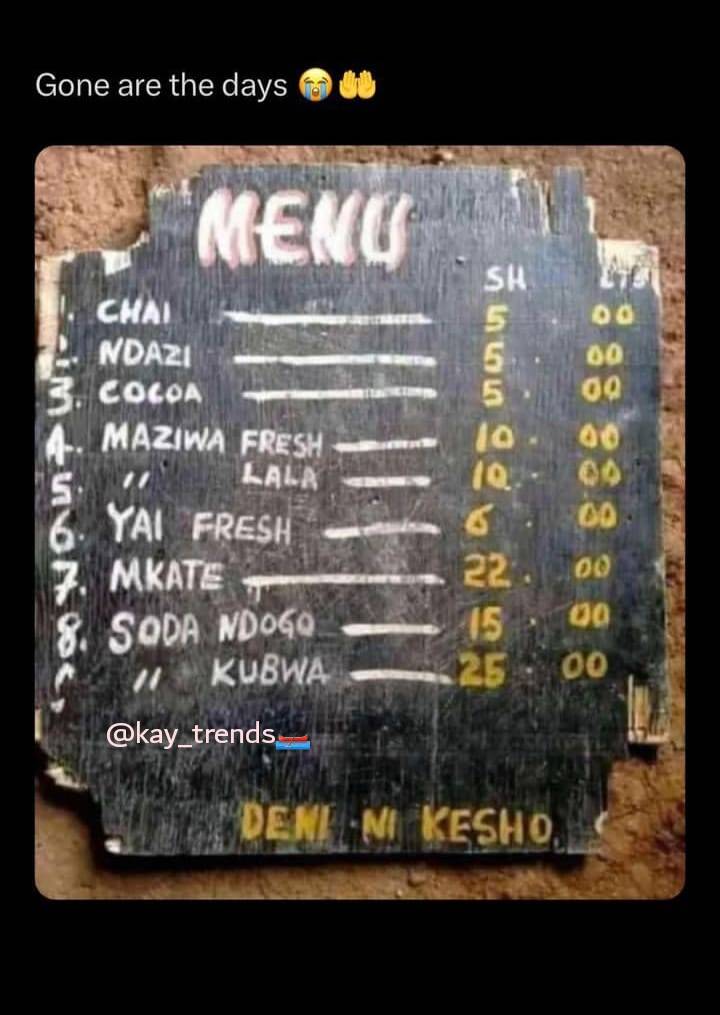 Gone are the days 😭🤲
MENU
SH CTS
1. CHAI 5 00
2. NDAZI 5. 00
3. COCOA 5. 00
4. MAZIWA FRESH 10. 00
5. " LALA 10. 00
6. YAI FRESH 6. 00
7. MKATE 22. 00
8. SODA NDOGO 15. 00
" KUBWA 25. 00
@kay_trends
DENI NI KESHO